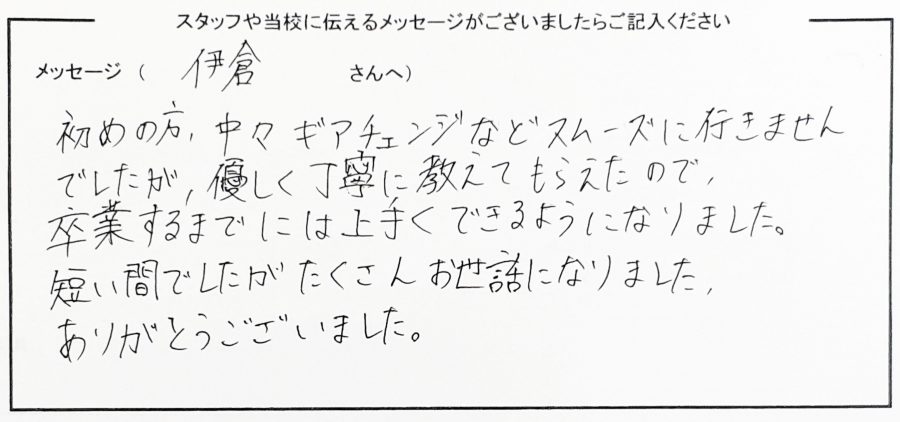 スタッフや当校に伝えるメッセージがございましたらご記入ください
メッセージ ( 伊倉 さんへ)
初めの方、中々ギアチェンジなどスムーズに行きません
でしたが、優しく丁寧に教えてもらえたので、
卒業するまでには上手くできるようになりました。
短い間でしたがたくさんお世話になりました、
ありがとうございました。